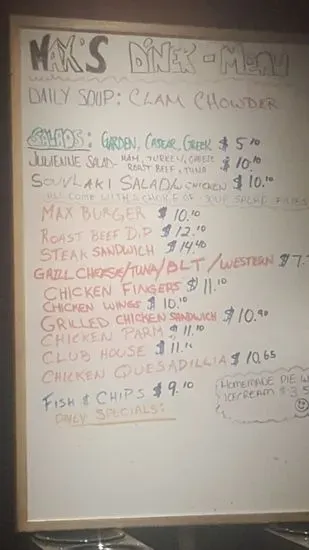 MAX'S DINER - MENU
DAILY SOUP: CLAM CHOWDER
SALADS: GARDEN, CAESAR, GREEK $ 5.10
JULIENNE SALAD - HAM, TURKEY, CHEESE $ 10.10
ROAST BEEF, TUNA
SOUVLAKI SALAD W CHICKEN $ 10.10
ALL COME WITH CHOICE OF SOUP SALAD FRIES
MAX BURGER $ 10.10
ROAST BEEF DIP $ 12.10
STEAK SANDWICH $ 14.40
GRILL CHEESE/TUNA/BLT/WESTERN $ 7.
CHICKEN FINGERS $ 11.10
CHICKEN WINGS $ 10.10
GRILLED CHICKEN SANDWICH $ 10.90
CHICKEN PARM $ 11.10
CLUB HOUSE $ 11.
CHICKEN QUESADILLIA $ 10.65
FISH & CHIPS $ 9.10
HOMEMADE PIE W
ICECREAM $ 3.5
DAILY SPECIALS: